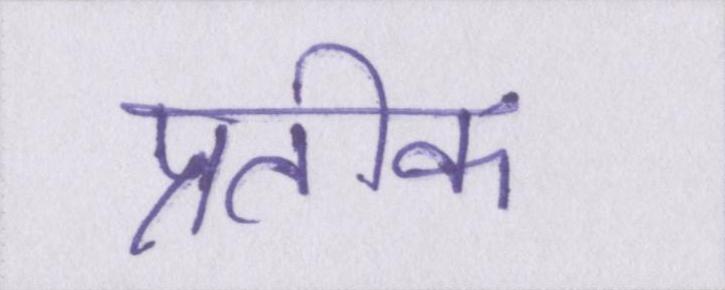 प्रतीक